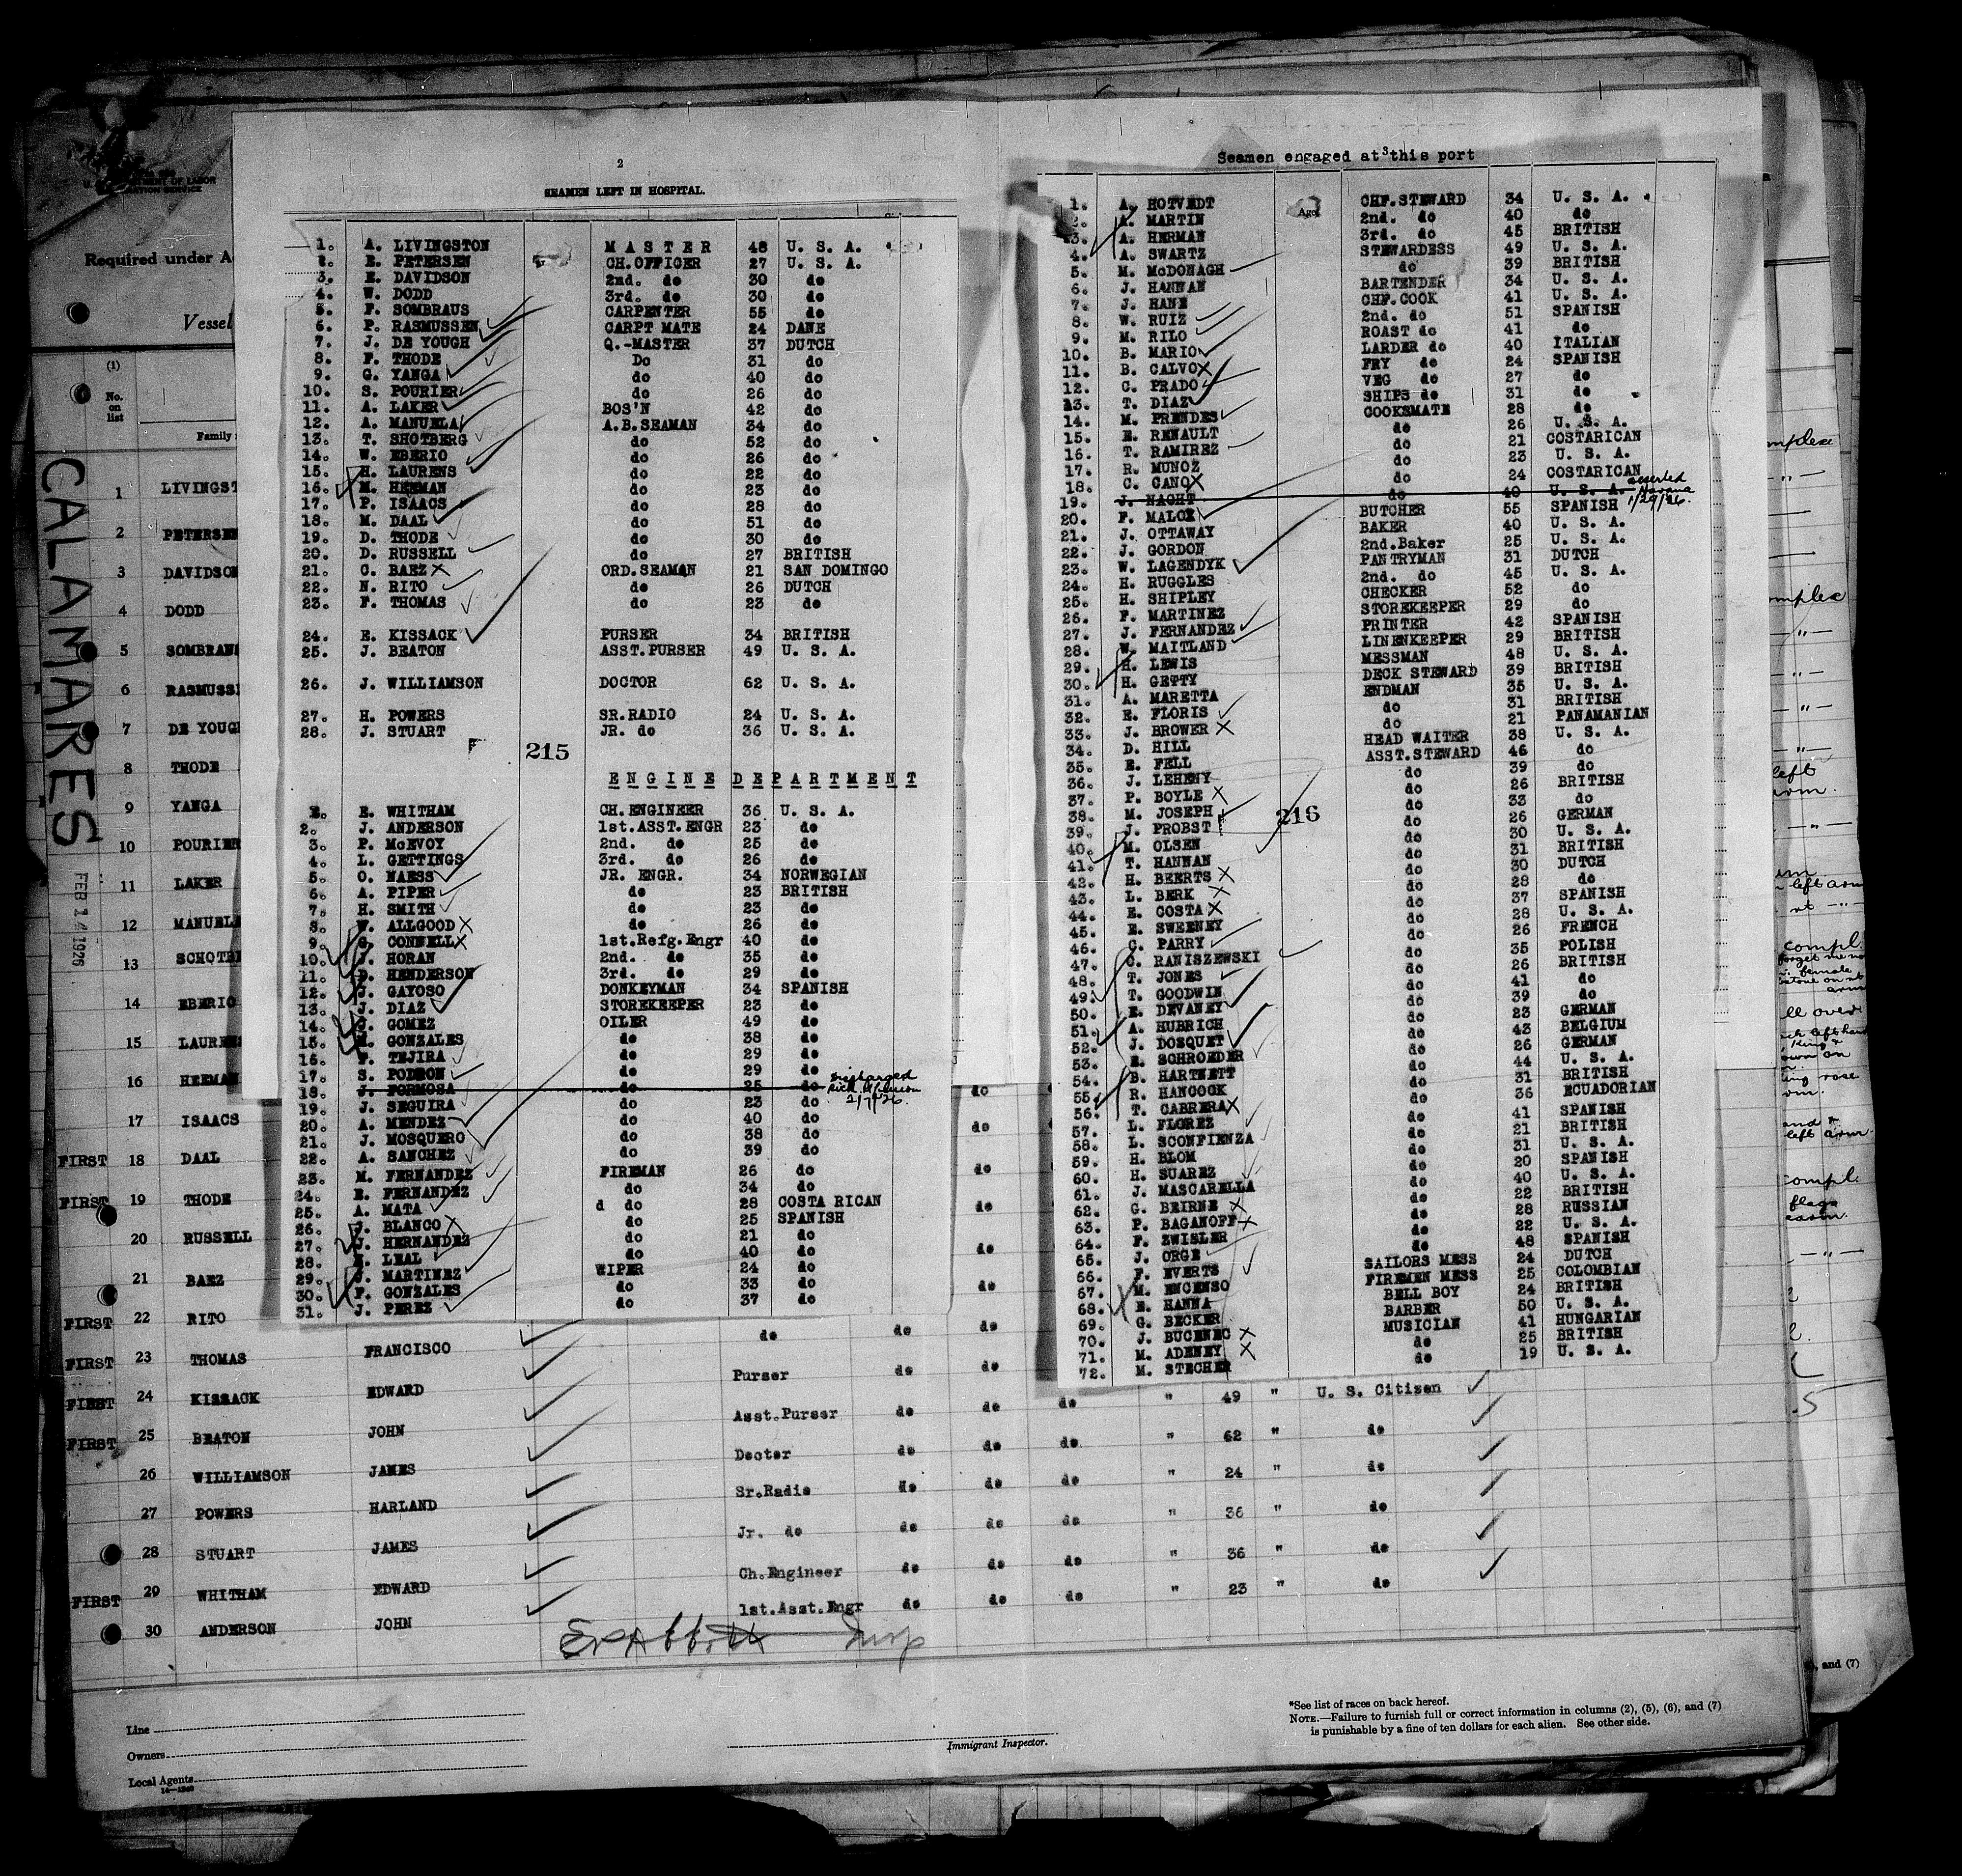 2
SEAMEN LEFT IN HOSPITAL.
1. A. LIVINGSTON MASTER 48 U. S. A.
2. E. PETERSEN CH.OFFICER 27 U. S. A.
3. E. DAVIDSON 2nd. do 30 do
4. W. DODD 3rd. do 30 do
5. F. SOMBRAUS CARPENTER 55 do
6. P. RASMUSSEN CARPT MATE 24 DANE
7. J. DE YOUGH Q.-MASTER 37 DUTCH
8. F. THODE Do 31 do
9. G. YANGA do 40 do
10. S. POURIER do 26 do
11. A. LAKER BOS'N 42 do
12. A. MANUELA A.B.SEAMAN 34 do
13. T. SHOTBERG do 52 do
14. W. EBERIO do 26 do
15. H. LAURENS do 22 do
16. M. HERMAN do 23 do
17. P. ISAACS do 28 do
18. M. DAAL do 51 do
19. D. THODE do 30 do
20. D. RUSSELL do 27 BRITISH
21. C. BAEZ ORD.SEAMAN 21 SAN DOMINGO
22. N. RITO do 26 DUTCH
23. F. THOMAS do 23 do
24. E. KISSACK PURSER 34 BRITISH
25. J. BEATON ASST.PURSER 49 U. S. A.
26. J. WILLIAMSON DOCTOR 62 U. S. A.
27. H. POWERS SR.RADIO 24 U. S. A.
28. J. STUART JR. do 36 U. S. A.
215
ENGINE DEPARTMENT
1. E. WHITHAM CH.ENGINEER 36 U. S. A.
2. J. ANDERSON 1st.ASST.ENGR 23 do
3. P. McEVOY 2nd. do 25 do
4. L. GETTINGS 3rd. do 26 do
5. O. NAESS JR. ENGR. 34 NORWEGIAN
6. A. PIPER do 23 BRITISH
7. H. SMITH do 23 do
8. W. ALLGOOD do 26 do
9. G. CONNELL 1st.Refg.Engr 40 do
10. J. HORAN 2nd. do 35 do
11. D. HENDERSON 3rd. do 29 do
12. J. GAYOSO DONKEYMAN 34 SPANISH
13. J. DIAZ STOREKEEPER 23 do
14. GOMEZ OILER 49 do
15. GONZALES do 38 do
16. F. TEJIRA do 29 do
17. S. PODRON do 29 do
18. J. FORMOSA do 25 do discharged 2/7/26.
19. J. SEGUIRA do 23 do
20. A. MENDEZ do 40 do
21. J. MOSQUERO do 38 do
22. A. SANCHEZ do 39 do
23. M. FERNANDEZ FIREMAN 26 do
24. E. FERNANDEZ do 34 do
25. A. MATA d do 28 COSTA RICAN
26. J. BLANCO do 25 SPANISH
27. J. HERNANDEZ do 21 do
28. LEAL do 40 do
29. J. MARTINEZ WIPER 24 do
30. F. GONZALES do 33 do
31. J. PEREZ do 37 do
Seamen engaged at 3 this port
Age
1. A. HOTVEDT CHF.STEWARD 34 U. S. A.
2. A. MARTIN 2nd. do 40 do
3. A. HERMAN 3rd. do 45 BRITISH
4. A. SWARTZ STEWARDESS 49 U. S. A.
5. M. McDONAGH do 39 BRITISH
6. J. HANNAN BARTENDER 34 U. S. A.
7. J. HANE CHF.COOK 41 U. S. A.
8. W. RUIZ 2nd. do 51 SPANISH
9. M. RILO ROAST do 41 do
10. B. MARIO LARDER do 40 ITALIAN
11. B. CALVO FRY do 24 SPANISH
12. C. PRADO VEG do 27 do
13. T. DIAZ SHIPS do 31 do
14. M. PRENDES COOKSMATE 28 do
15. E. RENAULT do 26 U. S. A.
16. T. RAMIREZ do 21 COSTARICAN
17. R. MUNOZ do 23 U. S. A.
18. C. CANO do 24 COSTARICAN
19. J. NACHT do 40 U. S. A. deserted Havana 1/29/26.
20. F. MALOX BUTCHER 55 SPANISH
21. J. OTTAWAY BAKER 40 U. S. A.
22. J. GORDON 2nd.Baker 25 U. S. A.
23. W. LAGENDYK PANTRYMAN 31 DUTCH
24. H. RUGGLES 2nd. do 45 U. S. A.
25. H. SHIPLEY CHECKER 52 do
26. F. MARTINEZ STOREKEEPER 29 do
27. J. FERNANDEZ PRINTER 42 SPANISH
28. W. MAITLAND LINENKEEPER 29 BRITISH
29. H. LEWIS MESSMAN 48 U. S. A.
30. H. GETTY DECK STEWARD 39 BRITISH
31. A. MARETTA ENDMAN 35 U. S. A.
32. E. FLORIS do 31 BRITISH
33. J. BROWER do 21 PANAMANIAN
34. D. HILL HEAD WAITER 38 U. S. A.
35. E. FELL ASST.STEWARD 46 do
36. J. LEHENY do 39 do
37. P. BOYLE do 26 BRITISH
38. M. JOSEPH do 33 do
216
39. J. PROBST do 26 GERMAN
40. M. OLSEN do 30 U. S. A.
41. T. HANNAN do 31 BRITISH
42. H. BEERTS do 30 DUTCH
43. L. BERK do 28 do
44. E. COSTA do 37 SPANISH
45. E. SWEENEY do 28 U. S. A.
46. C. PARRY do 26 FRENCH
47. C. RANISZEWSKI do 35 POLISH
48. T. JONES do 26 BRITISH
49. T. GOODWIN do 41 do
50. E. DEVANEY do 39 do
51. A. HUBRICH do 23 GERMAN
52. J. DOSQUET do 43 BELGIUM
53. E. SCHROEDER do 26 GERMAN
54. B. HARTNETT do 44 U. S. A.
55. R. HANCOCK do 31 BRITISH
56. T. CABRERA do 36 ECUADORIAN
57. L. FLOREZ do 41 SPANISH
58. L. SCONFIENZA do 21 BRITISH
59. H. BLOM do 31 U. S. A.
60. H. SUAREZ do 20 SPANISH
61. J. MASCARELLA do 40 U. S. A.
62. G. BEIRNE do 22 BRITISH
63. P. BAGANOFF do 28 RUSSIAN
64. F. ZWISLER do 22 U. S. A.
65. J. ORGE do 48 SPANISH
66. F. EVERTS SAILORS MESS 24 DUTCH
67. M. ENCENSO FIREMEN MESS 25 COLOMBIAN
68. E. HANNA BELL BOY 24 BRITISH
69. G. BECKER BARBER 50 U. S. A.
70. J. BUCENEC MUSICIAN 41 HUNGARIAN
71. M. ADENEY do 25 BRITISH
72. M. STECHER do 19 U. S. A.
Required under A
Vessel
(1)
No. on list
Family
CALAMARES
FEB 14 1926
1 LIVINGST
2 PETERSEN
3 DAVIDSON
4 DODD
5 SOMBRAN
6 RASMUSS
7 DE YOUGH
8 THODE
9 YANGA
10 POURIER
11 LAKER
12 MANUELA
13 SCHOTB
14 EBERIO
15 LAURENS
16 HERMAN do
17 ISAACS do
FIRST 18 DAAL do
FIRST 19 THODE do
20 RUSSELL do
21 BAEZ do
FIRST 22 RITO
FIRST 23 THOMAS FRANCISCO do do do
FIRST 24 KISSACK EDWARD Purser do do
FIRST 25 BEATON JOHN Asst.Purser do do do " 49 " U. S. Citizen
26 WILLIAMSON JAMES Doctor do do do " 62 " do
27 POWERS HARLAND Sr.Radio do do do " 24 " do
28 STUART JAMES Jr. do do do do " 36 " do
FIRST 29 WHITHAM EDWARD Ch.Engineer do do do " 36 " do
30 ANDERSON JOHN 1st.Asst.Engr do do do " 23 " do
Line
Owners
Local Agents
14—1240
Immigrant Inspector.
*See list of races on back hereof.
NOTE.—Failure to furnish full or correct information in columns (2), (5), (6), and (7)
is punishable by a fine of ten dollars for each alien. See other side.
, and (7)